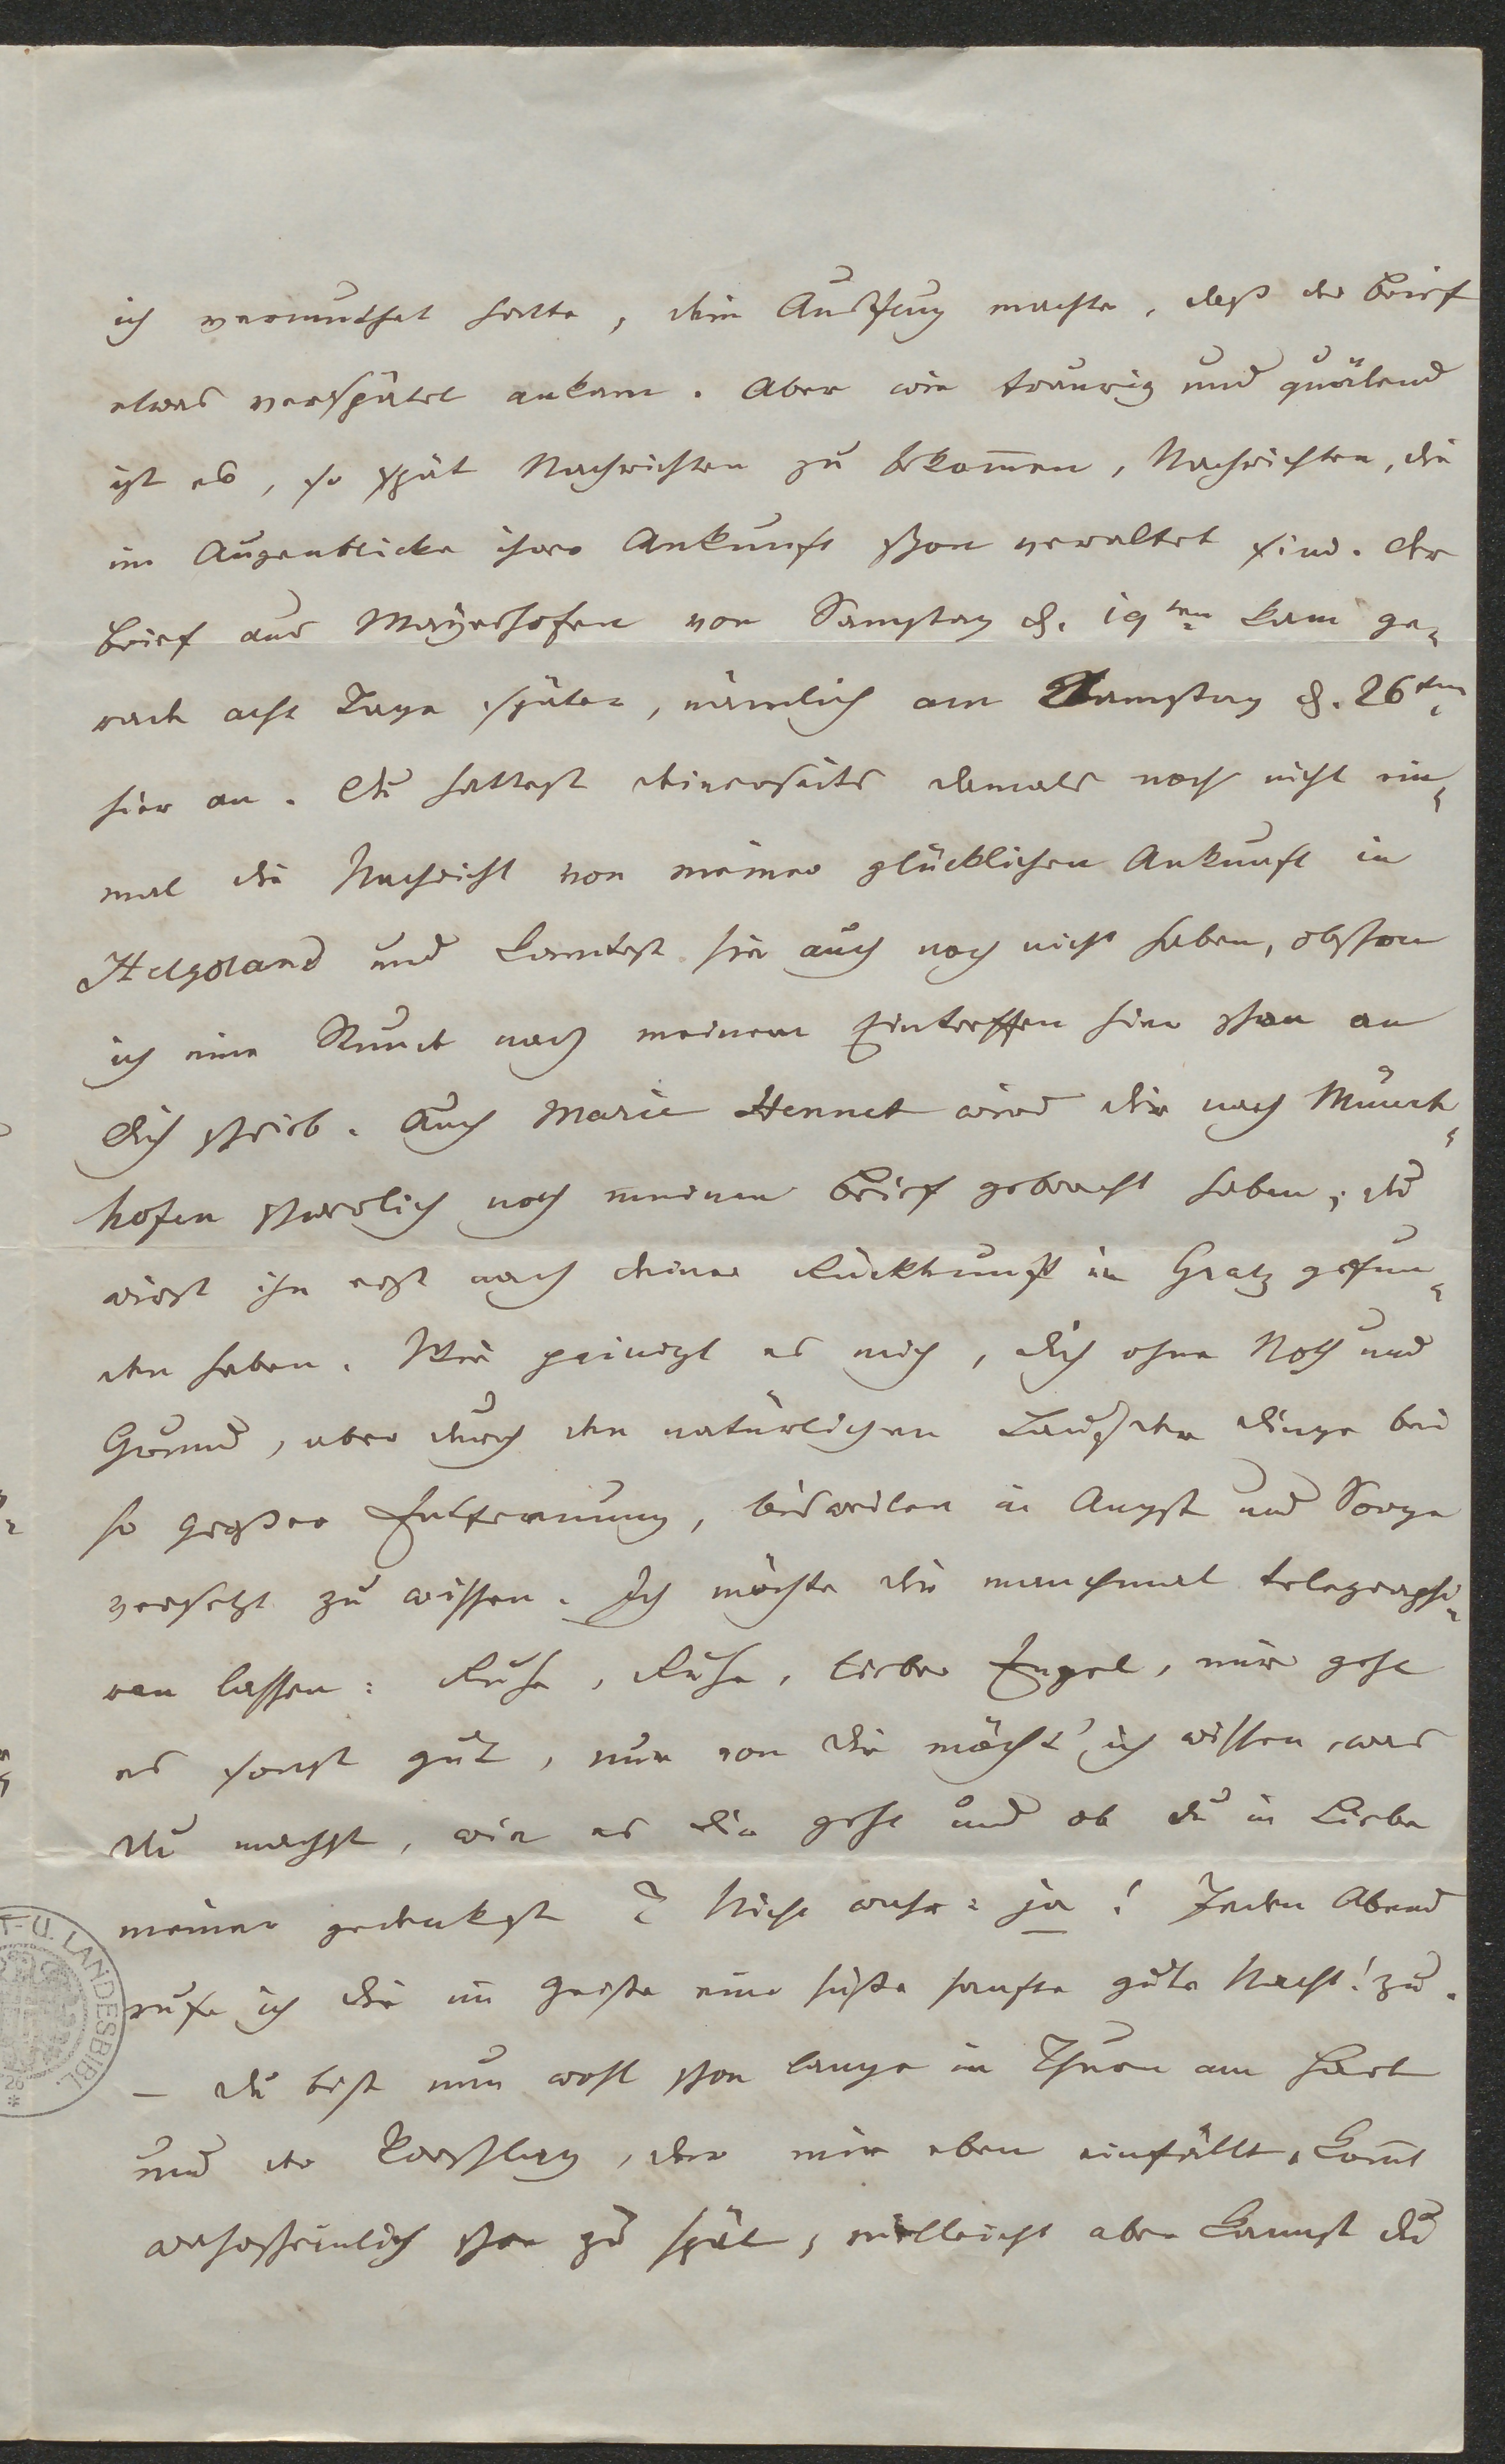 ich vermuthet hatte, dein Ausflug machte, daß der Brief
etwas verspätet ankam. Aber wie traurig und quälend
ist es, so spät Nachrichten zu bekom̅en, Nachrichten, die
im Augenblicke ihrer Ankunft schon veraltet sind. Der
Brief aus Mayerhofen von Samstag d. 19ten kam ge-
rade acht Tage später, nämlich am Samstag d. 26ten
hier an. Du hattest deinerseits damals noch nicht ein-
mal die Nachricht von meiner glücklichen Ankunft in
Helgoland und konntest sie auch noch nicht haben, obschon
ich eine Stunde nach meinem Eintreffen hier schon an
Dich schrieb. Auch Marie Hennet wird dir nach Münch-
hofen schwerlich noch meinen Brief gebracht haben, du
wirst ihn erst nach deiner Rückkunft in Gratz gefun-
den haben. Wie peinigt es mich, dich ohne Noth und
Grund, aber durch den natürlichen Lauf der Dinge bei
so großer Entfernung, bisweilen in Angst und Sorge
versetzt zu wissen. Ich möchte dir manchmal telegraphi-
ren lassen: Ruhe, Ruhe, lieber Engel, mir geht
es sonst gut, nur von dir möcht' ich wissen, was
du machst, wie es dir geht und ob du in Liebe
meiner gedenkst? Nicht wahr: ja! Jeden Abend
rufe ich dir im Geiste eine süße sanfte gute Nacht! zu.
— Du bist nun wohl schon lange in Thurn am Hart
und der Vorschlag, der mir eben einfällt, kom̅t
wahrscheinlich schon zu spät, vielleicht aber kannst du
T- U. LANDESBIBL. *